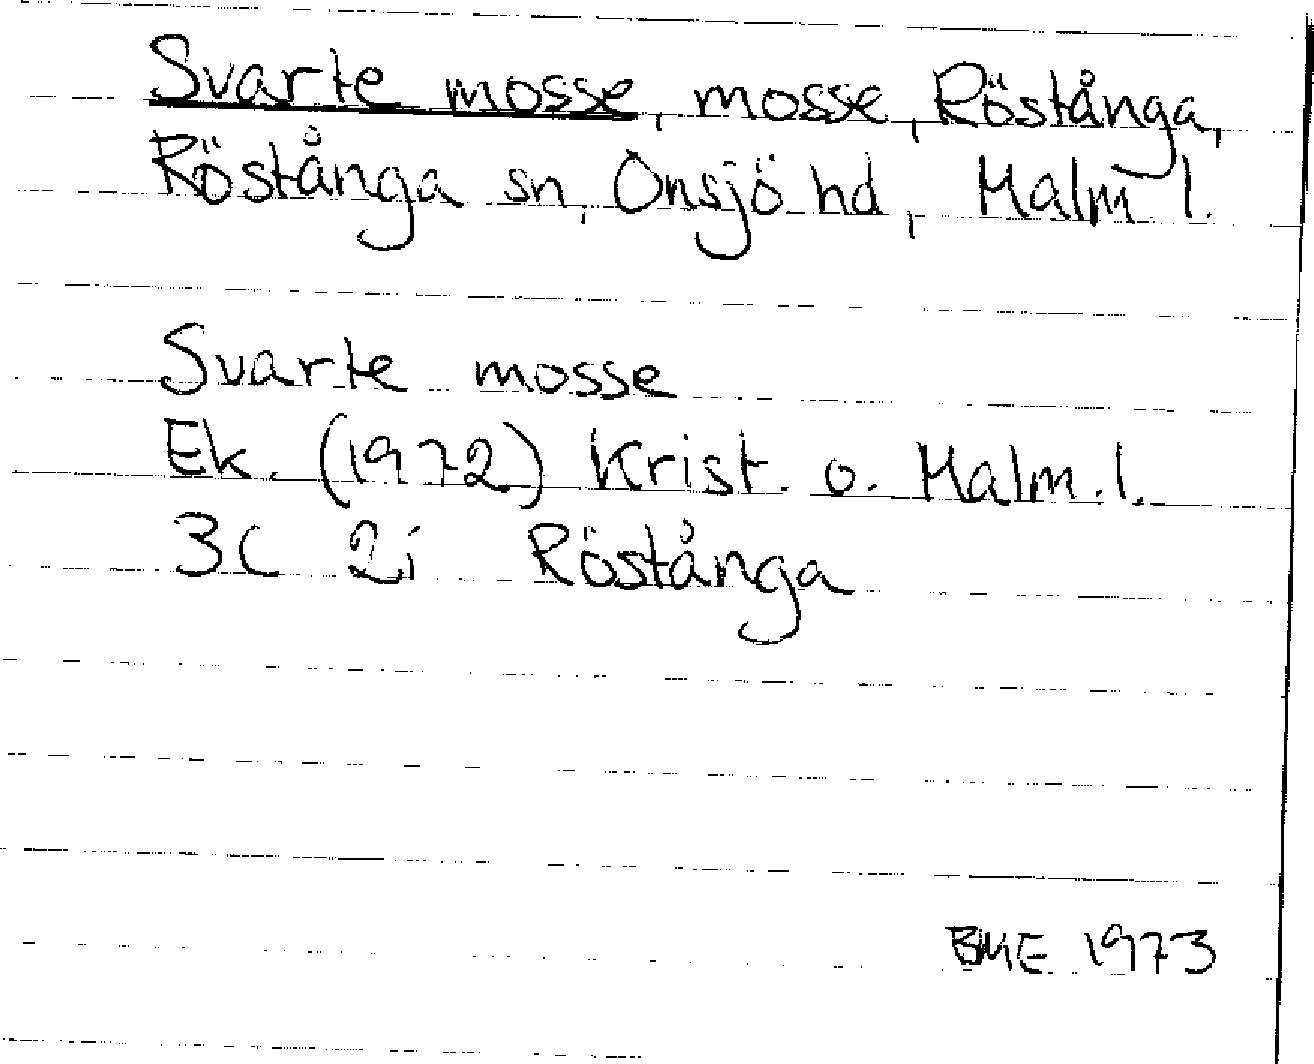 Svarte mosse, mosse, Röstånga,
Röstånga sn, Onsjö hd, Malm l.
Svarte mosse
Ek. (1972) Krist. o. Malm. l.
3C 2i Röstånga
BME 1973